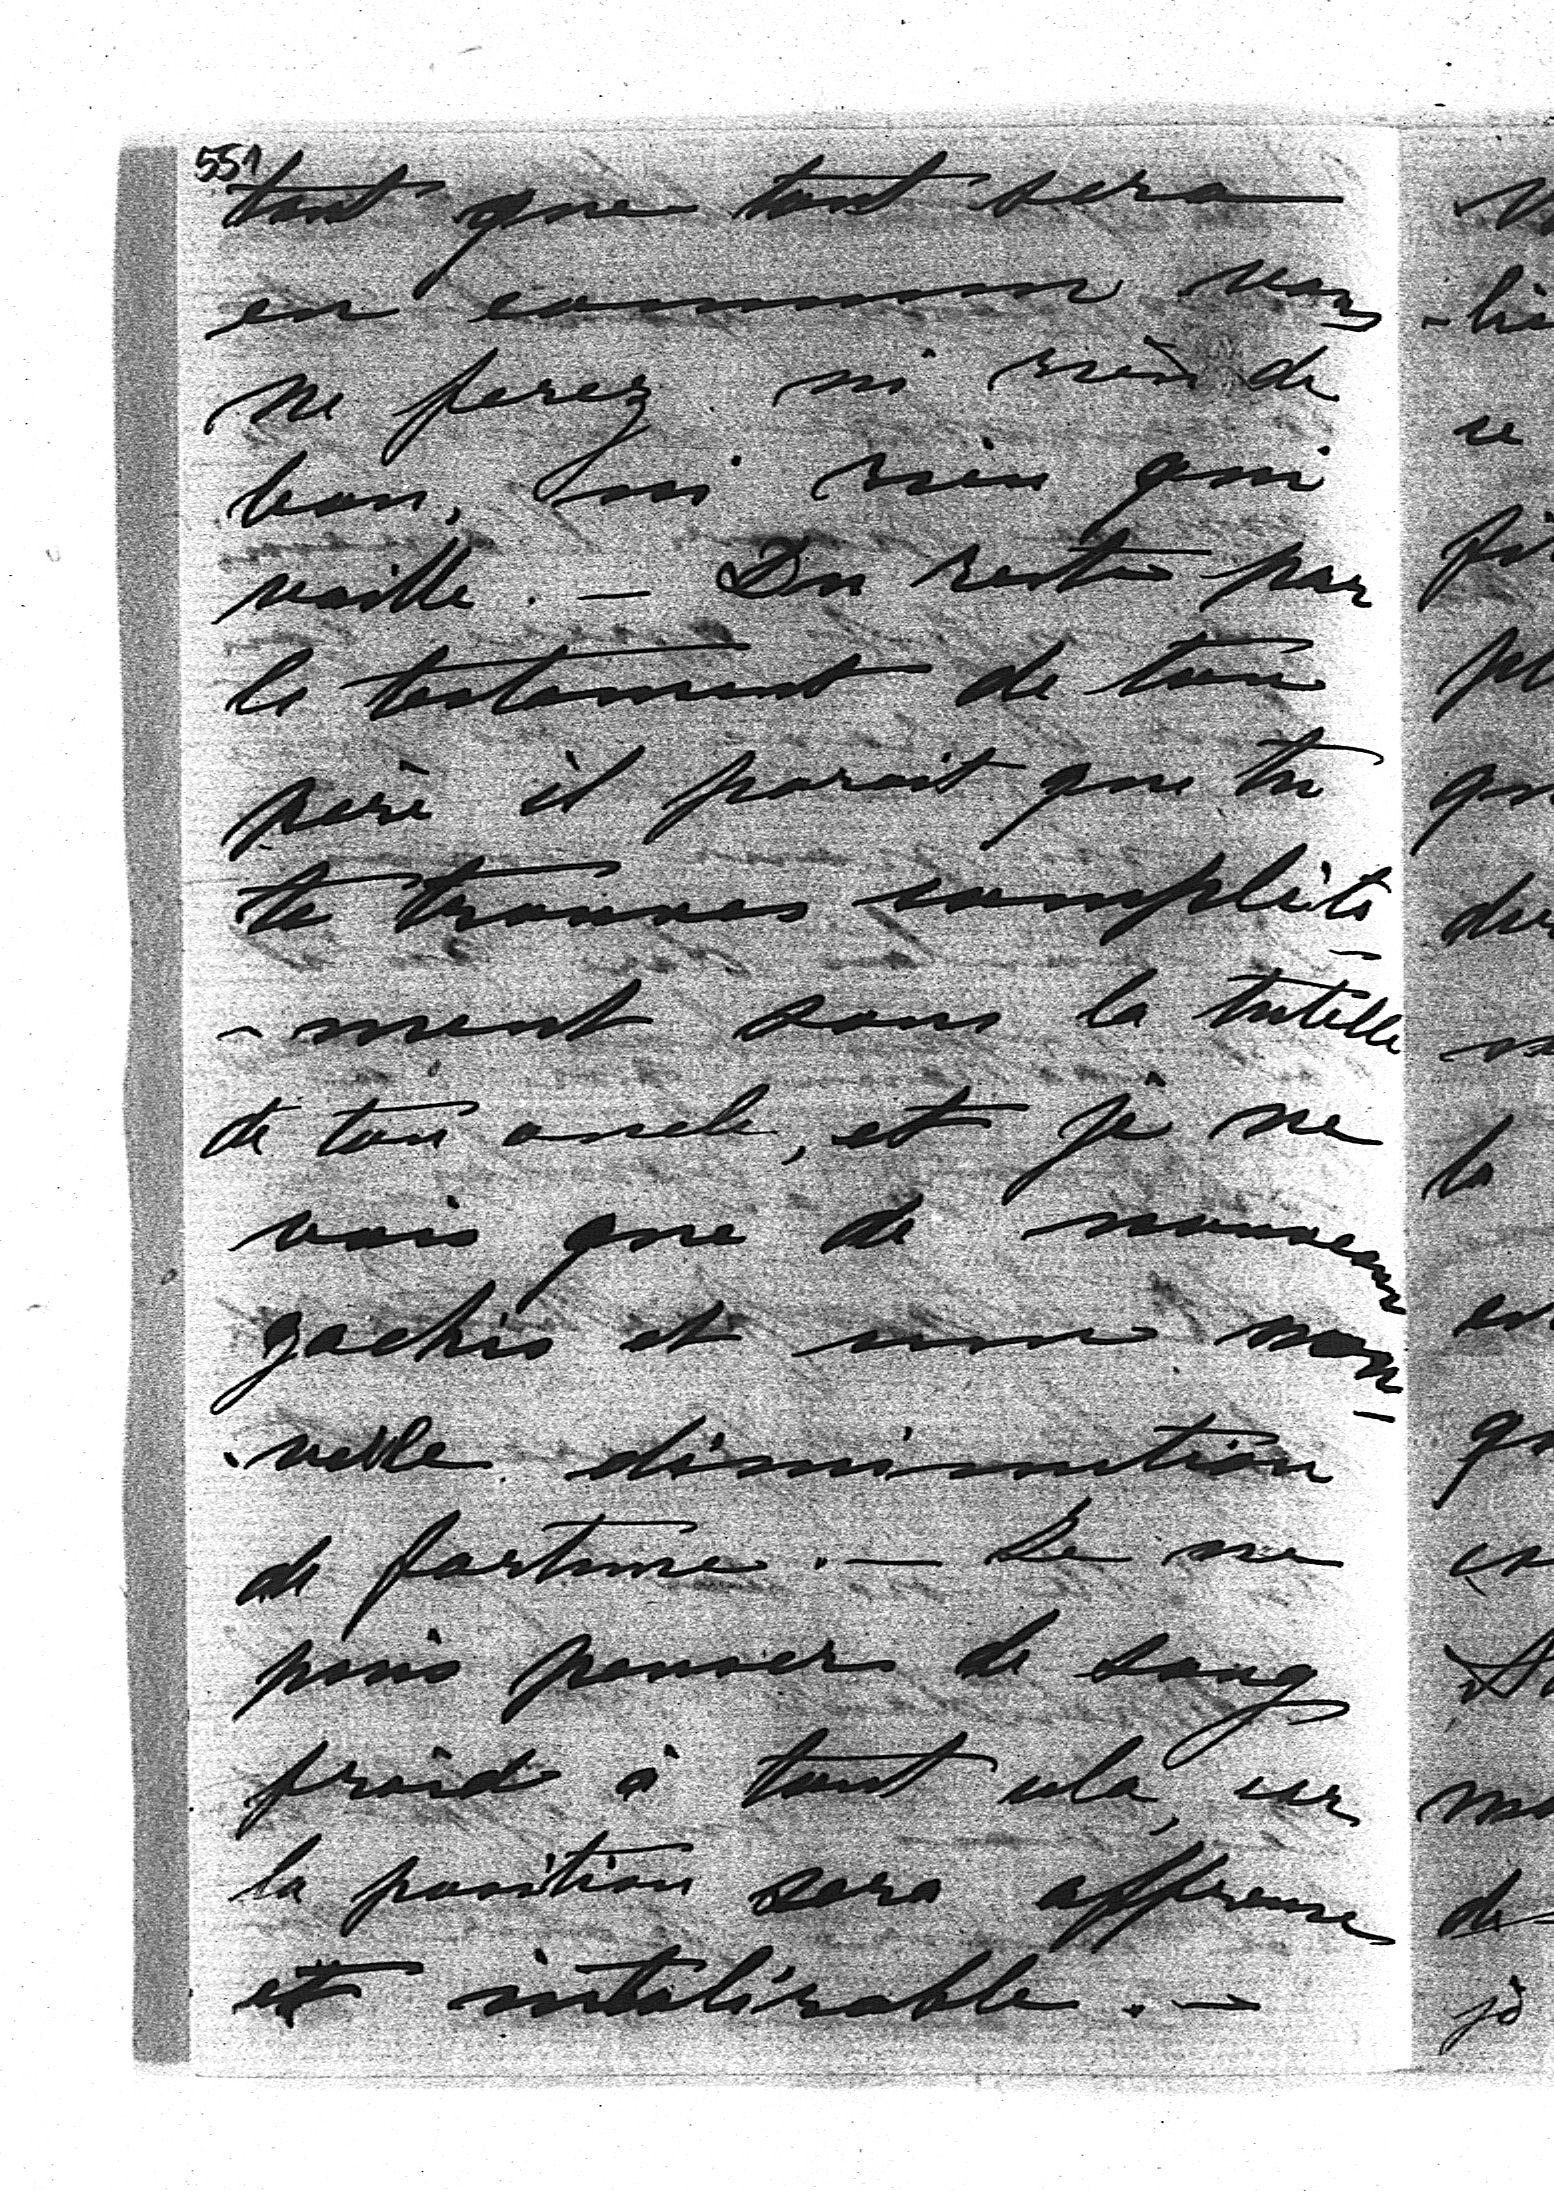 551
tant que tout sera
en commun vous
ne ferez ni rien de
bon, ni rien qui
vaille. — Du reste par
le testament de ton
père il parait que tu
te trouves complète-
-ment sous la tutelle
de ton oncle, et je ne
vois que de nouveaux
gachis et une nou-
-velle diminution
de fortune. — Je ne
puis penser de sang
froid à tout cela, car
la position sera affreuse
et intolérable. —